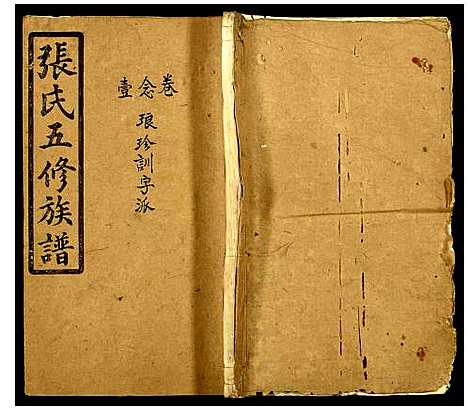 張氏五修族譜
卷念壹
琅珍訓字派